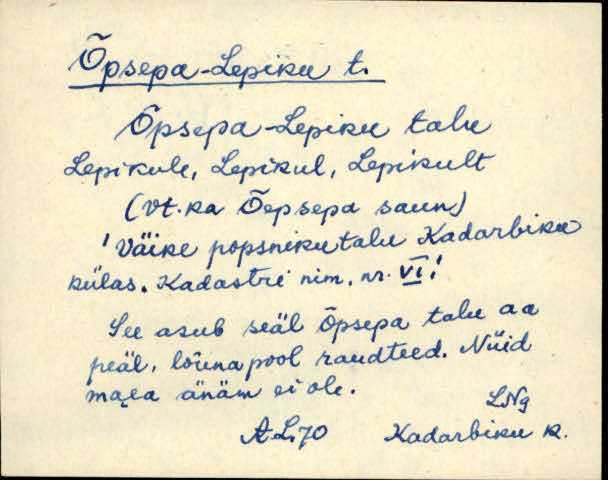 Õpsepa-Lepiku t.
Õpsepa-Lepiku talu
Lepikule, Lepikul, Lepikult
(vt. ka Õepsepa saun)
'Väike popsnikutalu Kadarbiku
külas. Kadastri nim. nr. VI'
See asub seäl Õpsepa talu aa
peäl, lõuna pool raudteed. Nüid
maea änäm ei ole.
LNg
A.L.70 Kadarbiku k.